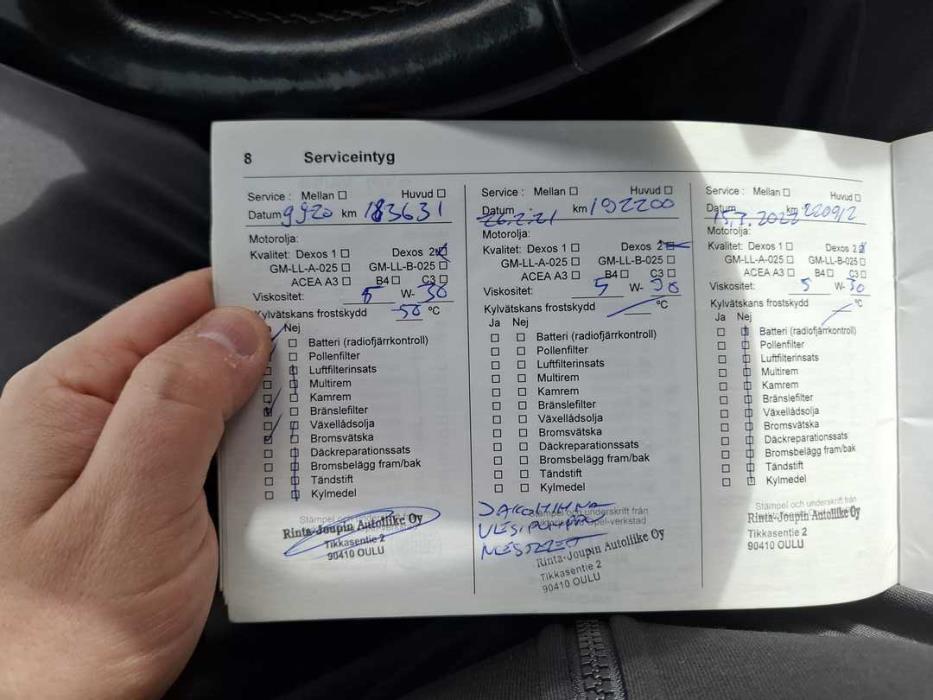 8 Serviceintyg
Service : Mellan ☐ Huvud ☐
Datum 9920 km 183631
Motorolja:
Kvalitet: Dexos 1 ☐ Dexos 2 ☒
GM-LL-A-025 ☐ GM-LL-B-025 ☐
ACEA A3 ☐ B4 ☐ C3 ☐
Viskositet: 5 W- 30
Kylvätskans frostskydd -50 °C
Nej
Batteri (radiofjärrkontroll)
Pollenfilter
Luftfilterinsats
Multirem
Kamrem
Bränslefilter
Växellådsolja
Bromsvätska
Däckreparationssats
Bromsbelägg fram/bak
Tändstift
Kylmedel
Rinta-Joupin Autoliike Oy
Tikkasentie 2
90410 OULU
Service : Mellan ☐ Huvud ☐
Datum 26.2.21 km 192200
Motorolja:
Kvalitet: Dexos 1 ☐ Dexos 2 ☒
GM-LL-A-025 ☐ GM-LL-B-025 ☐
ACEA A3 ☐ B4 ☐ C3 ☐
Viskositet: 5 W- 30
Kylvätskans frostskydd °C
Ja Nej
☐ ☐ Batteri (radiofjärrkontroll)
☐ ☐ Pollenfilter
☐ ☐ Luftfilterinsats
☐ ☐ Multirem
☐ ☐ Kamrem
☐ ☐ Bränslefilter
☐ ☐ Växellådsolja
☐ ☐ Bromsvätska
☐ ☐ Däckreparationssats
☐ ☐ Bromsbelägg fram/bak
☐ ☐ Tändstift
☐ ☐ Kylmedel
Stämpel och underskrift från
Rinta-Joupin Autoliike Oy
Tikkasentie 2
90410 OULU
Service : Mellan ☐ Huvud ☐
Datum 15.7.2022 km 220912
Motorolja:
Kvalitet: Dexos 1 ☐ Dexos 2 ☒
GM-LL-A-025 ☐ GM-LL-B-025 ☐
ACEA A3 ☐ B4 ☐ C3 ☐
Viskositet: 5 W- 30
Kylvätskans frostskydd °C
Ja Nej
☐ ☐ Batteri (radiofjärrkontroll)
☐ ☐ Pollenfilter
☐ ☐ Luftfilterinsats
☐ ☐ Multirem
☐ ☐ Kamrem
☐ ☐ Bränslefilter
☐ ☐ Växellådsolja
☐ ☐ Bromsvätska
☐ ☐ Däckreparationssats
☐ ☐ Bromsbelägg fram/bak
☐ ☐ Tändstift
☐ ☐ Kylmedel
Stämpel och underskrift från
Rinta-Joupin Autoliike Oy
Tikkasentie 2
90410 OULU